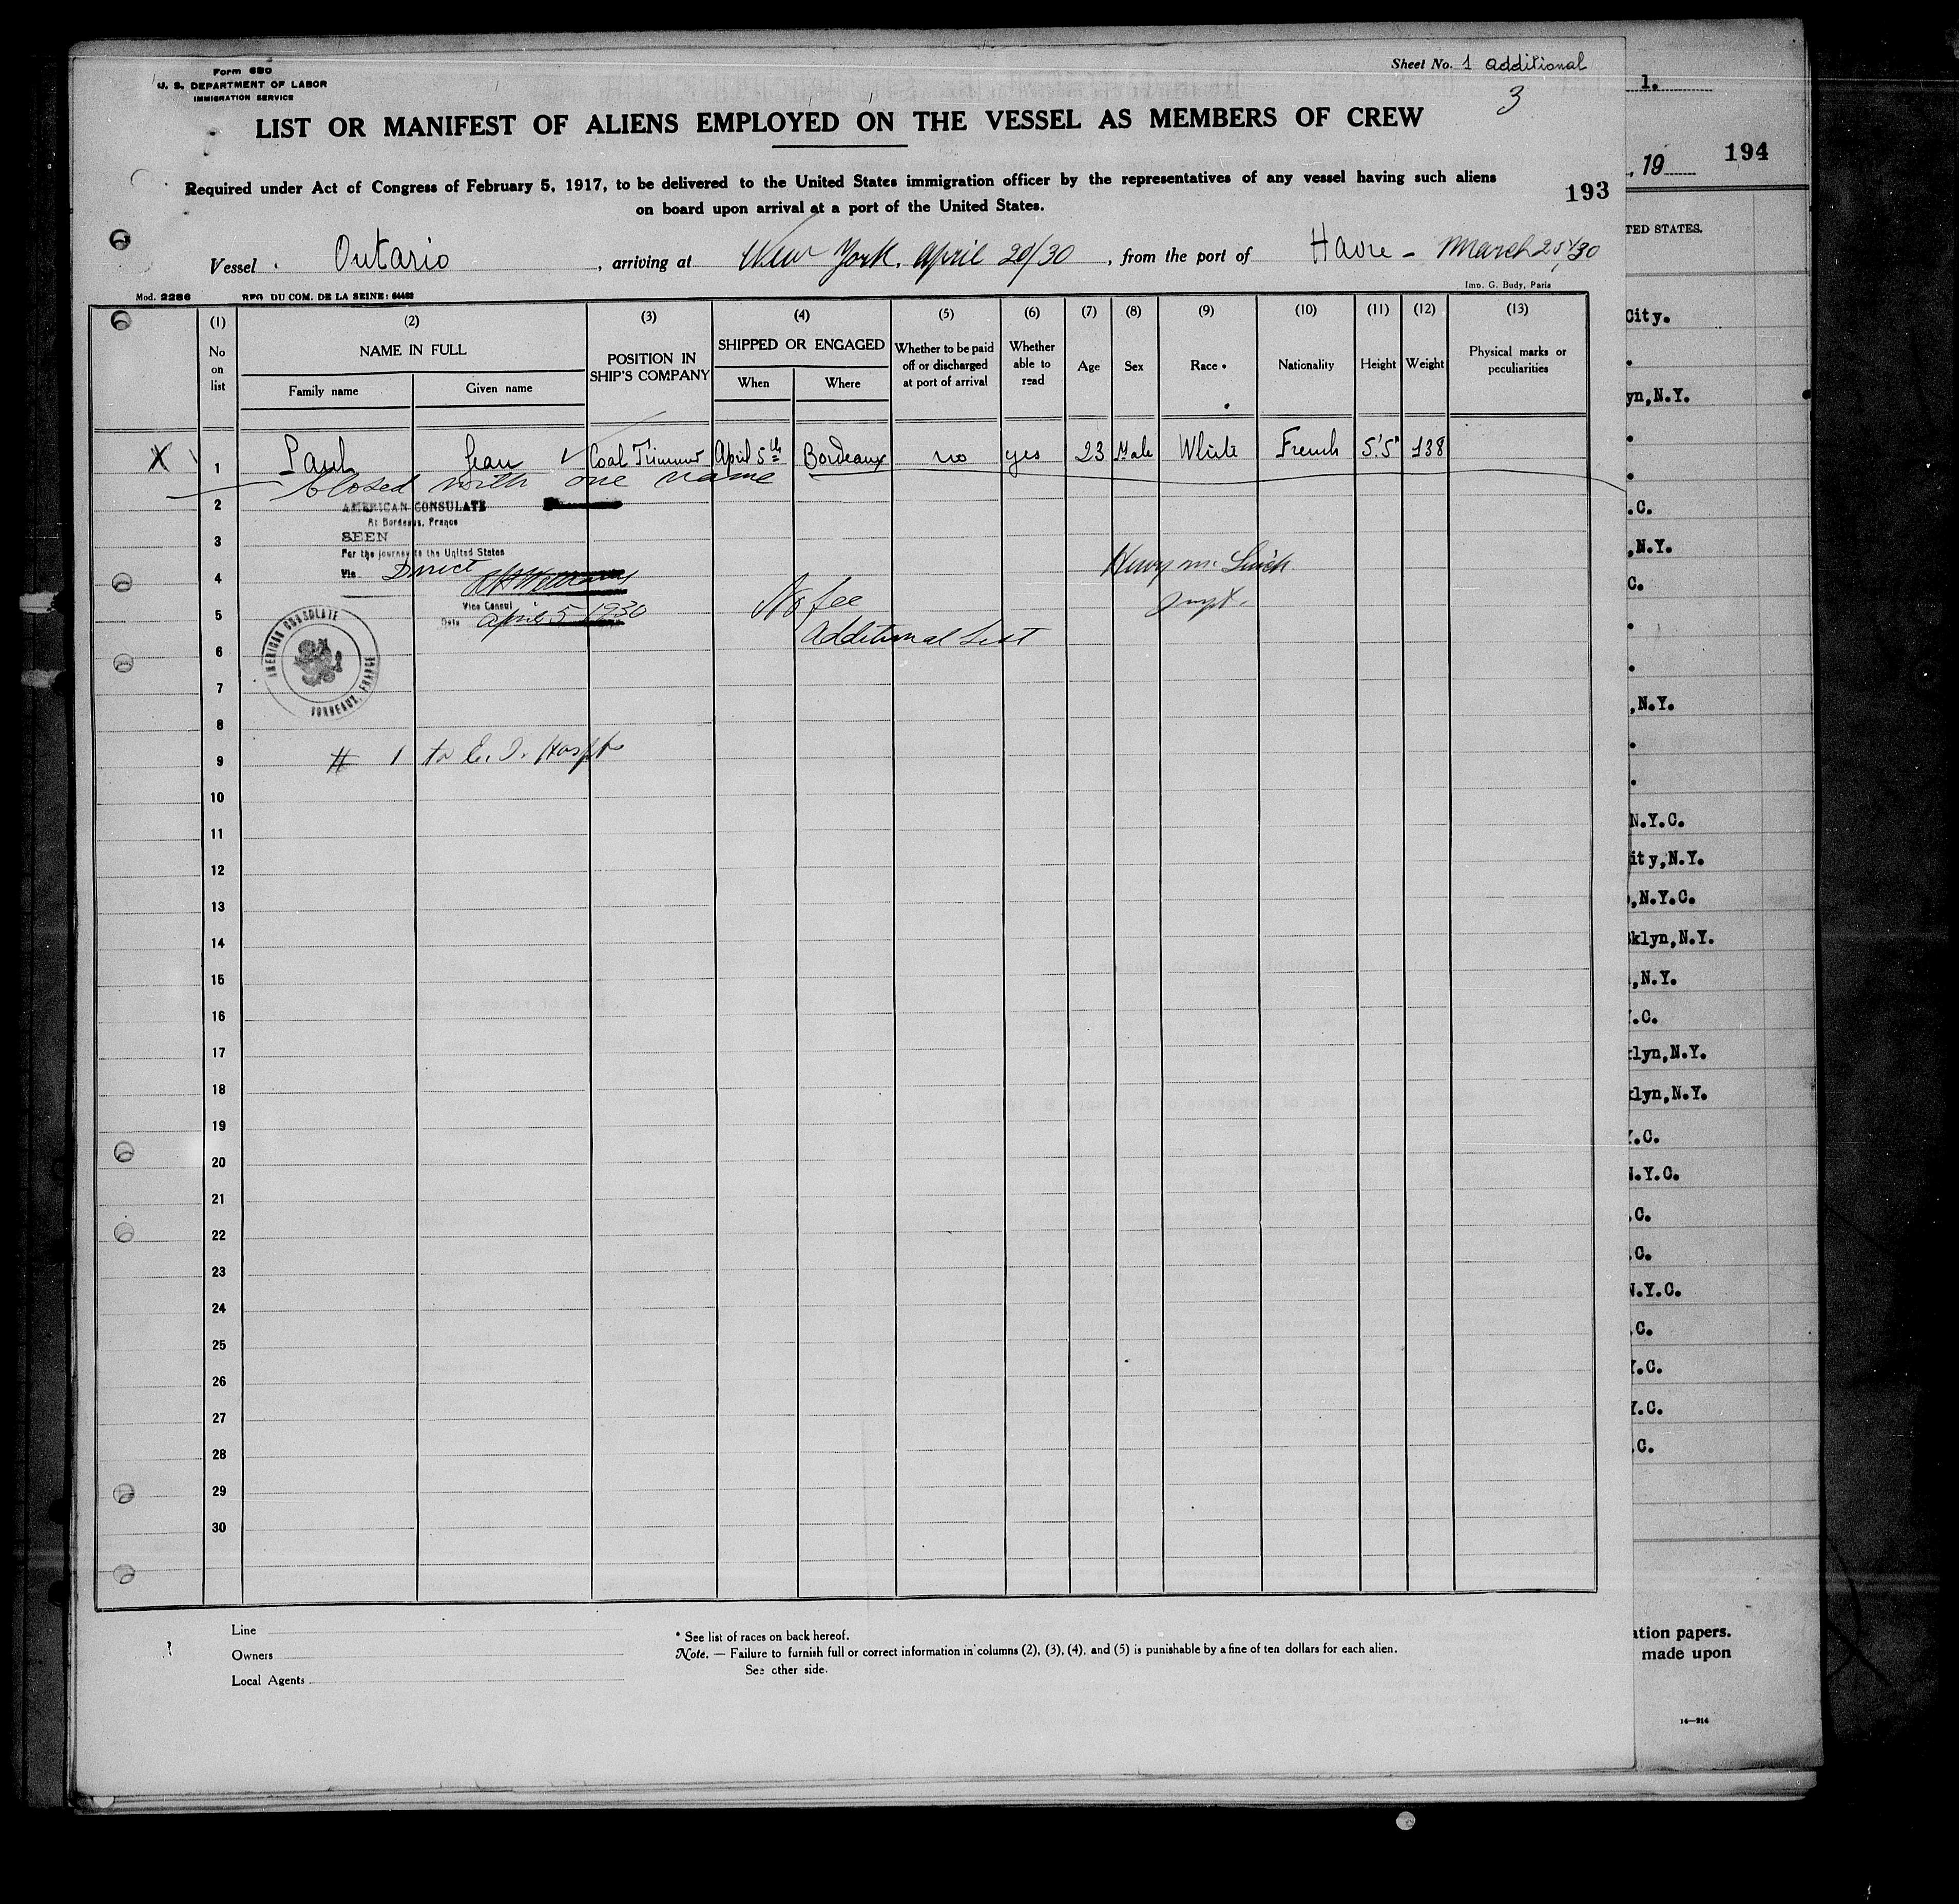 Form 680
U. S. DEPARTMENT OF LABOR
IMMIGRATION SERVICE
Sheet No. 1 Additional
3
LIST OR MANIFEST OF ALIENS EMPLOYED ON THE VESSEL AS MEMBERS OF CREW
Required under Act of Congress of February 5, 1917, to be delivered to the United States immigration officer by the representatives of any vessel having such aliens
on board upon arrival at a port of the United States.
193
Vessel Ontario, arriving at New York, April 20/30, from the port of Havre - March 25/30
Mod. 2286 REG. DU COM. DE LA SEINE: 64463
Imp. G. Budy, Paris
(1) (2) (3) (4) (5) (6) (7) (8) (9) (10) (11) (12) (13)
No on list
NAME IN FULL
Family name Given name
POSITION IN SHIP'S COMPANY
SHIPPED OR ENGAGED
When Where
Whether to be paid off or discharged at port of arrival
Whether able to read
Age Sex Race Nationality Height Weight
Physical marks or peculiarities
X 1 Paul Jean Coal Trimmer April 5th Bordeaux no yes 23 Male White French 5'5" 138
Closed with one name
2
AMERICAN CONSULATE
At Bordeaux, France
3
SEEN
For the journey to the United States
4
Via Direct
Vice Consul
Date April 5 1930
5
No fee
Additional List
Henry M.
6
AMERICAN CONSULATE
BORDEAUX, FRANCE
7
8
9
# 1 to E. I. Hospt
10
11
12
13
14
15
16
17
18
19
20
21
22
23
24
25
26
27
28
29
30
Line
Owners
Local Agents
* See list of races on back hereof.
Note. — Failure to furnish full or correct information in columns (2), (3), (4), and (5) is punishable by a fine of ten dollars for each alien.
See other side.
1.
, 19
194
TED STATES.
City.
yn,N.Y.
.C.
,N.Y.
C.
,N.Y.
N.Y.C.
ity,N.Y.
,N.Y.C.
klyn,N.Y.
,N.Y.
.C.
klyn,N.Y.
klyn,N.Y.
.C.
N.Y.C.
.C.
.C.
N.Y.C.
.C.
Y.C.
Y.C.
.C.
ation papers.
made upon
14—214